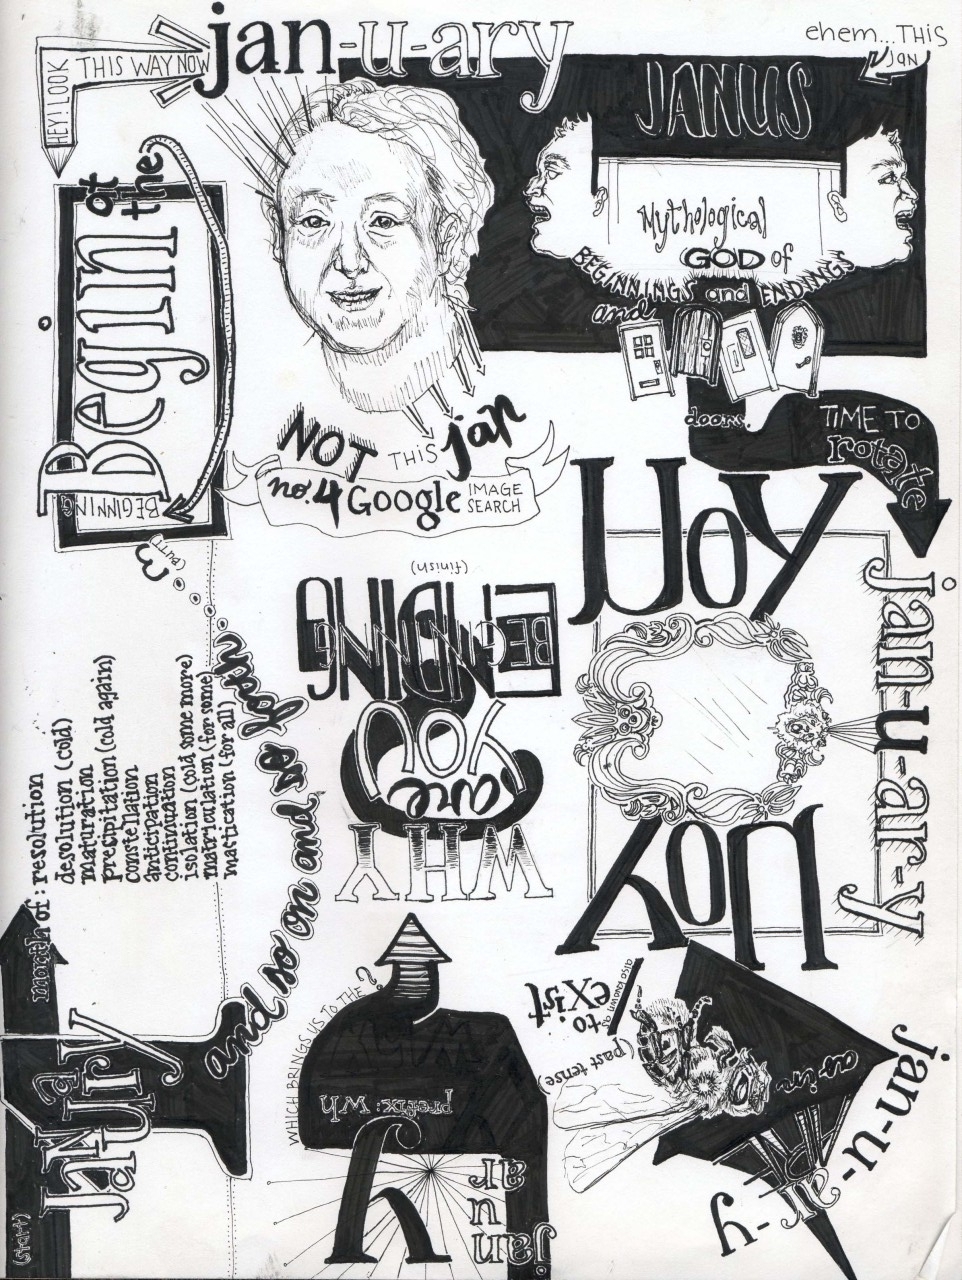 jan-u-ary
ehem...THIS
jan
HEY! LOOK
THIS WAY NOW
JANUS
Mythological
GOD of
BEGINNINGS and ENDINGS
and
doors.
Begin
at
the
BEGINNING
NOT THIS jan
no.4 Google IMAGE
SEARCH
TIME TO
rotate
UoY
jan-u-ar-y
(finish)
ENDING
BEGINNING
YOU
are
WHY
(but)
and so on and so forth
month of: resolution
desolution (cold)
maturation
precipitation (cold again)
constellation
anticipation
continuation
isolation (cold some more)
matriculation (for some)
mastication (for all)
JANUARY
(start)
WHICH BRINGS US TO THE?
prefix: wh
y
jan
u
ar
to
exist
also known as
(past tense)
as in
jan-u-ar-y